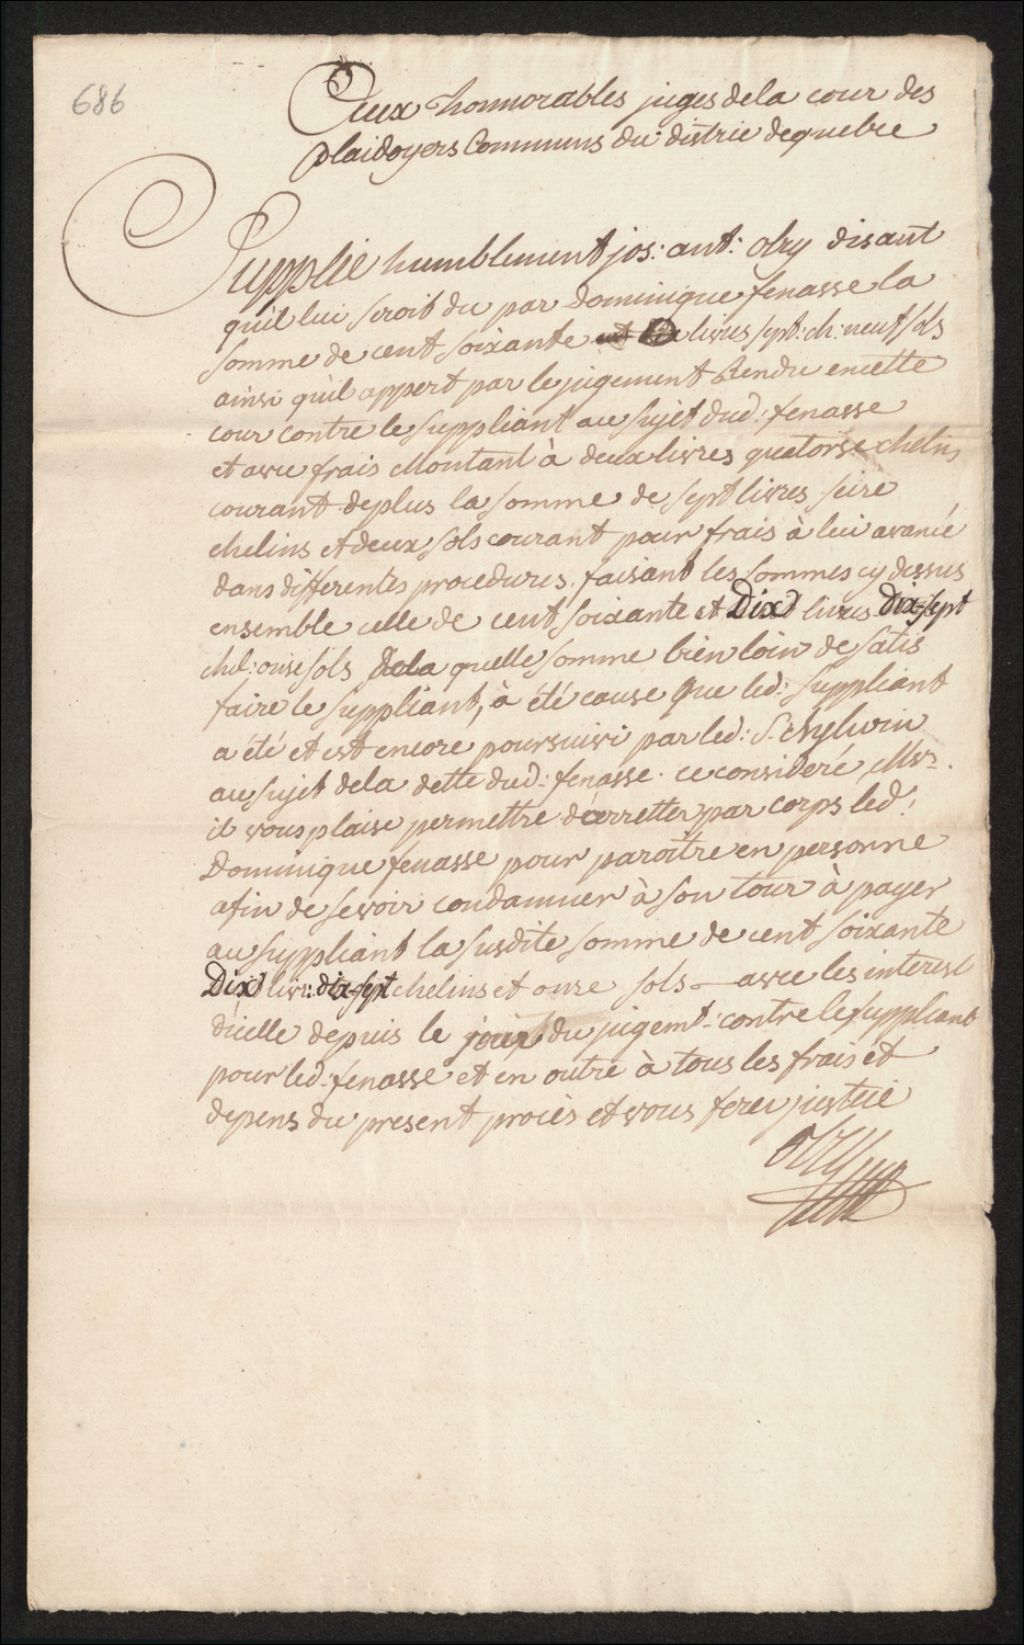 686
Aux honnorables juges dela cour des
plaidoyers Communs du distric de quebec
Supplie humblement jos: ant: olry disant
quil lui seroit du par dominique fenasse la
somme de cent soixante livres sept: ch: neuf sols
ainsi quil appert par le jugement Rendu en cette
cour contre le suppliant au sujet dud: fenasse
et avec frais Montant à deux livres quatorse chelins
courant deplus la somme de sept livres seise
chelins et deux sols courant pour frais à lui avancé
dans differentes procedures. faisant les sommes cy dessus
ensemble celle de cent soixante et Dix livres Dix-sept
chel: onse sols de la quelle somme bien loin de satis
faire le suppliant, à été cause que led: suppliant
a été et est encore poursuivi par led: S.
au sujet dela dette dud: fenasse. ce consideré, Mrs.
il vous plaise permettre d'arretter par corps led:
Dominique fenasse pour paroitre en personne
afin de se voir condamner à son tour à payer
au suppliant la susdite somme de cent soixante
Dix livr: dix-sept chelins et onse sols avec les interest
d'icelle depuis le jour du jugemt: contre le suppliant
pour led: fenasse et en outre à tous les frais et
depens du present procès et vous ferez justice
olry